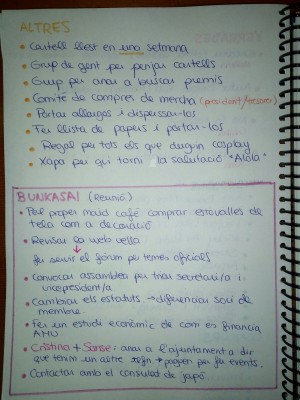 ALTRES
• Cartell llest en una setmana
• Grup de gent per penjar cartells
• Grup per anar a buscar premis
• Comitè de compres de mercha (president/tresorer)
• Portar allargos i dispensar-los
• Fer llista de papers i portar-los
• Regal per tots els que duguin cosplay
• Xapa per qui torni la salutació "Alola"
BUNKASAI (Reunió)
• Pel proper maid café comprar estovalles de
tela com a decoració
• Revisar la web vella
fer servir el fórum per temes oficials
• Convocar assamblea per triar secretari/a i
vicepresident/a
• Cambiar els estatuts → diferenciar soci de
membre.
• Fer un estudi econòmic de com es financia
AMU.
• Cristina + Sanse: anar a l'ajuntament a dir
que tenim un altre + paguen per fer events.
• Contactar amb el consulat de Japó.